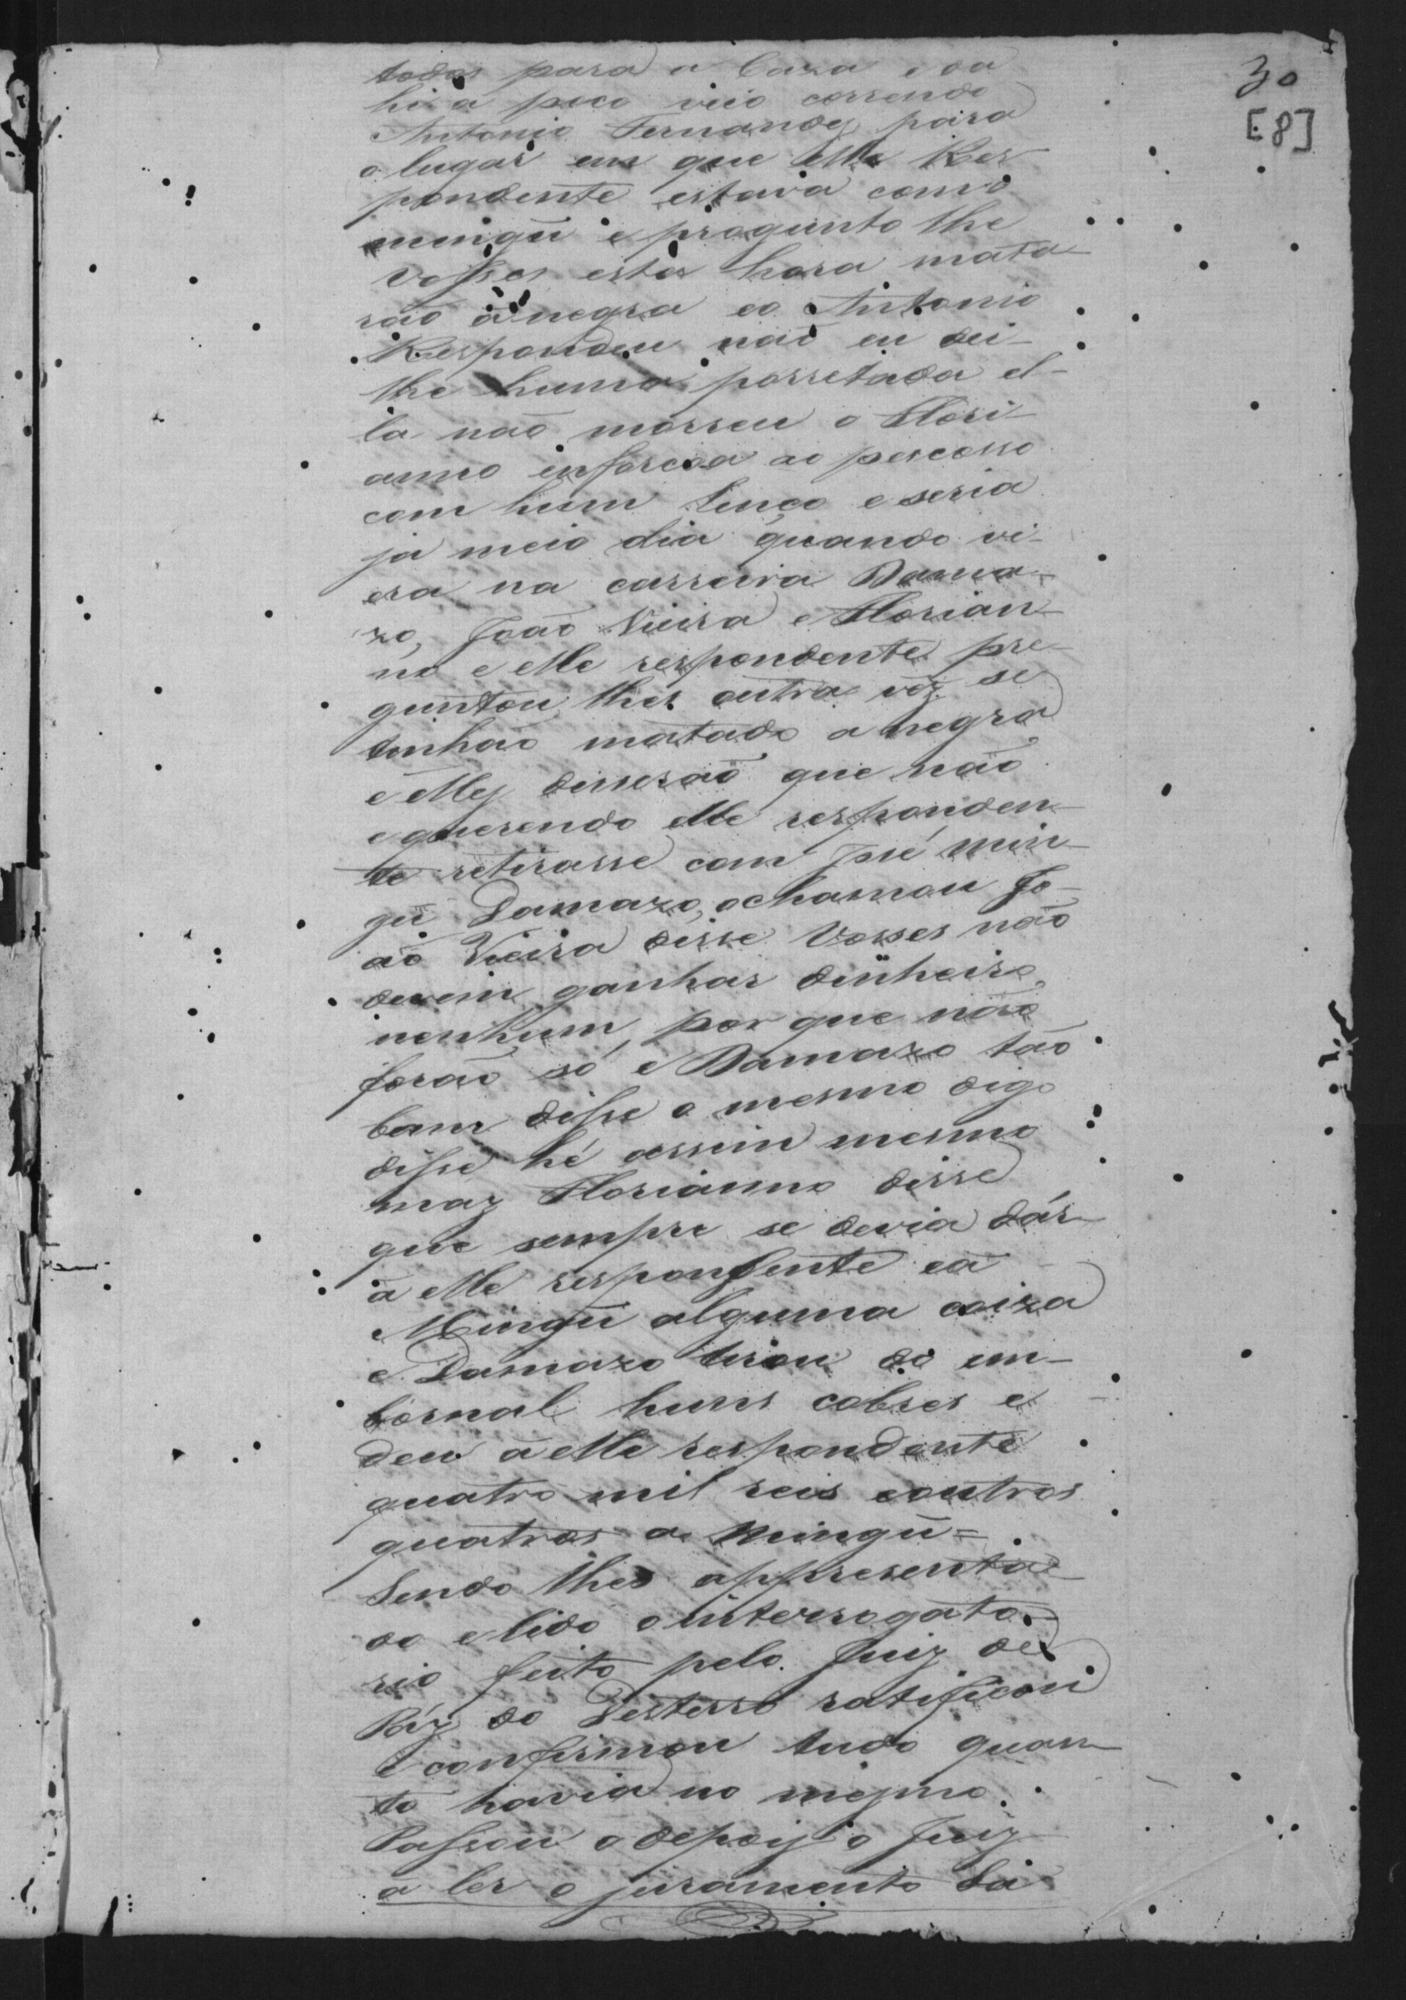 30
[8]
todos para a Caza e da
hi a poco veio correndo
Antonio Fernandes para
o lugar em que elle Res
pondente estava com o
mingu e progunto lhe
Vosses estas hora mata
rão a negra eo Antonio
Respondeu não eu dei-
lhe huma porretada el-
la não morreu o Flori-
anno inforcoa ao pescosso
com hum lenço e seria
ja meio dia quando vi-
era na carreira Dama-
zo, João Vieira e Florian-
no e elle respondente pre-
guntou lhes outra vez se
tinhão matado a negra
e elles disserão que não
e querendo elle responden-
te retirasse com José Min-
gu Damazo, o chamou Jo-
ão Vieira disse Vosses não
devem ganhar dinheiro
nenhum, por que não
forão só, e Damazo tão
bam disse o mesmo digo
disse hé assim mesmo
maz Florianno disse
que sempre se devia dár
a elle respondente ea
Mingu alguma coiza
e Damazo tirou do em-
bornal huns cobres e
deu a elle respondente
quatro mil reis eoutros
quatros a Mingu =
Sendo lhes appresenta-
do e lido o interrogato-
rio feito pelo Juiz de
Páz do Desterro ratificou
e confirmou tudo quan-
to havia no mesmo.
Passou o depois o Juiz
a ler o juramento da